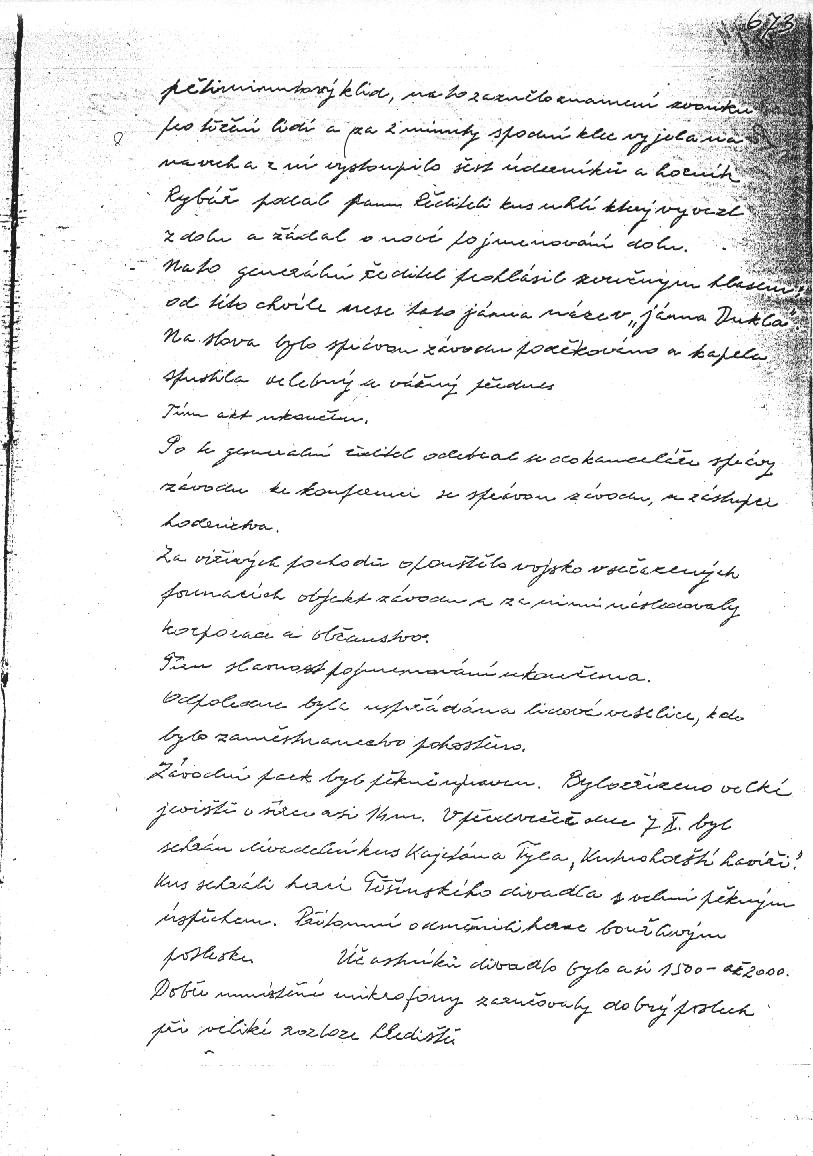 673
pětiminutový klid, na to zaznělo znamení zvonku
pro těžení lidí a za 2 minuty spodní klec vyjela na
na vrch a z ní vystoupilo šest úderníků a horník
Rybář podal panu Řediteli kus uhlí který vyvezl
z dolu a žádal o nové pojmenování dolu.
Na to generální ředitel prohlásil zvučným hlasem:
od této chvíle nese tato jáma název „jáma Dukla“.
Na slova bylo správou závodu poděkováno a kapela
spustila velebný a vážný přednes
Tím akt ukončen.
Po té generální ředitel odebral se do kanceláře správy
závodu ke konferenci se správou závodu, a zástupci
hodnictva.
Za vířivých pochodů opouštělo vojsko v seřazených
formacích objekt závodu a za nimi následovaly
korporace a občanstvo.
Tím slavnost pojmenování ukončena.
Odpoledne byla uspořádána lidová veselice, kde
bylo zaměstnanectvo pohostěno.
Závodní park byl pěkně upraven. Bylo zřízeno velké
jeviště o šířce asi 14m. V předvečer dne 7 X. byl
sehrán divadelní kus Kajetána Tyla „Kutnohorští havíři“.
Kus sehráli herci Těšínského divadla s velmi pěkným
úspěchem. Přítomní odměnili herce bouřlivým
potleskem. Účastníků divadla bylo asi 1500 - až 2000.
Dobře umístěné mikrofony zaručovaly dobrý poslech
při veliké rozloze hlediště